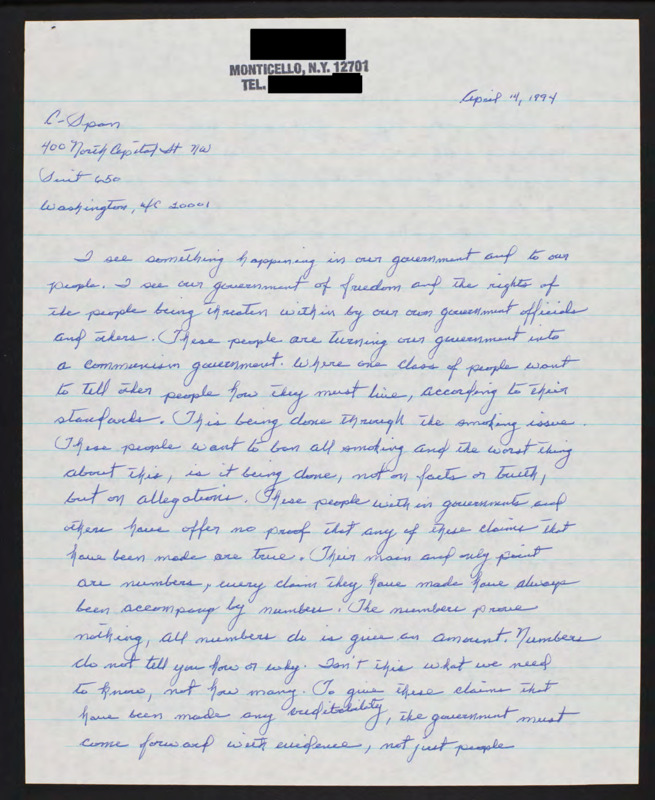 MONTICELLO, N.Y. 12701
TEL.
April 14, 1994
C-Span
400 North Capitol St NW
Suit 650
Washington, DC 20001
I see something happening in our government and to our
people. I see our government of freedom and the rights of
the people being threaten within by our own government officials
and others. These people are turning our government into
a communism government. Where one class of people want
to tell other people how they must live, according to their
standards. This being done through the smoking issue.
These people want to ban all smoking and the worst thing
about this, is it being done, not on facts or truth,
but on allegations. These people within governments and
others have offer no proof that any of these claims that
have been made are true. Their main and only point
are numbers, every claim they have made have always
been accompany by numbers. The numbers prove
nothing, all numbers do is give an amount. Numbers
do not tell you how or why. Isn't this what we need
to know, not how many. To give these claims that
have been made any creditability, the government must
come forward with evidence, not just people